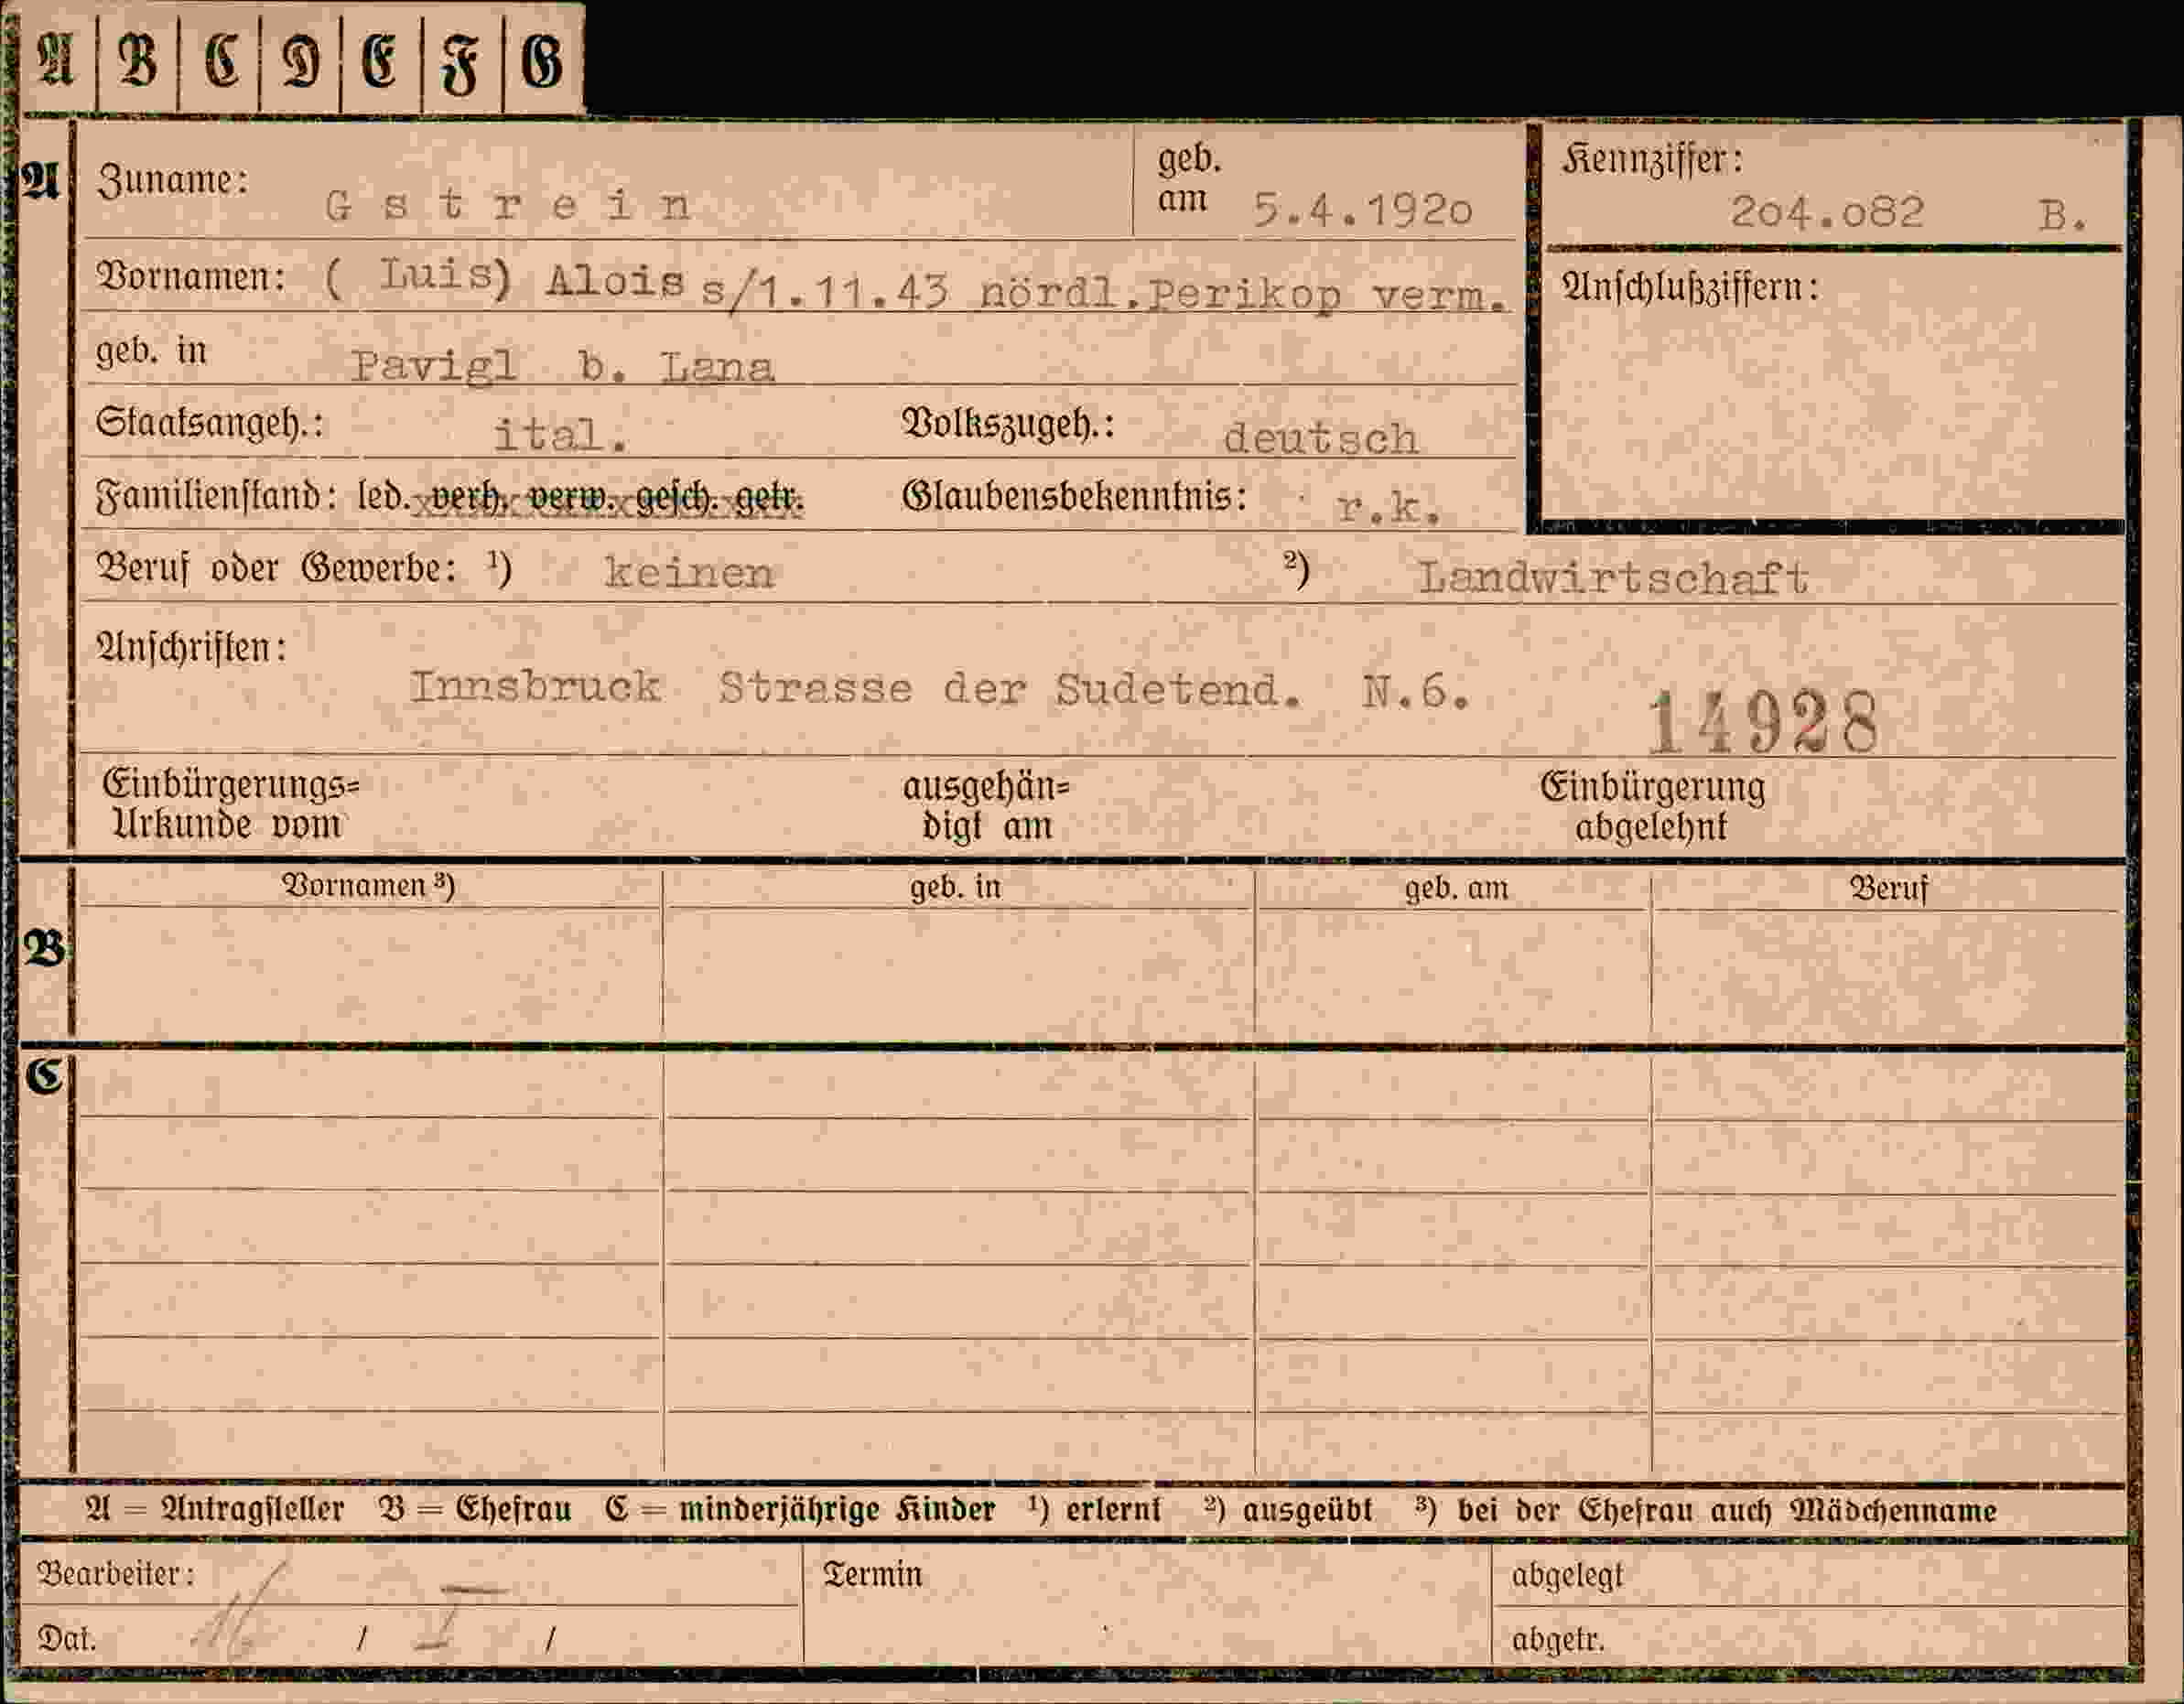 A B C D E F G
A Zuname: Gstrein geb. am 5.4.192o Kennziffer: 2o4.o82 B.
Vornamen: ( Luis) Alois s/1.11.43 nördl.Perikop verm. Anschlußziffern:
geb. in Pavigl b. Lana
Staatsangeh.: ital. Volkszugeh.: deutsch
Familienstand: led. verh. verw. gesch. getr. Glaubensbekenntnis: r.k.
Beruf oder Gewerbe: ¹) keinen ²) Landwirtschaft
Anschriften:
Innsbruck Strasse der Sudetend. N.6. 14928
Einbürgerungs= ausgehän= Einbürgerung
Urkunde vom digt am abgelehnt
Vornamen ³) geb. in geb. am Beruf
B
C
A = Antragsteller B = Ehefrau C = minderjährige Kinder ¹) erlernt ²) ausgeübt ³) bei der Ehefrau auch Mädchenname
Bearbeiter: Termin abgelegt
Dat. / / abgetr.